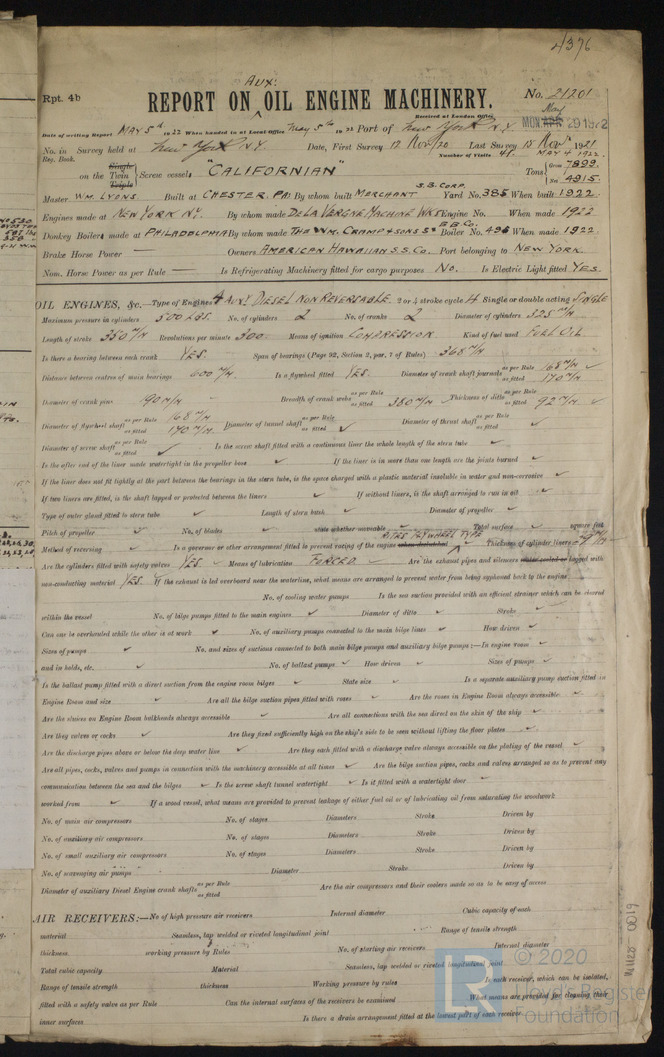 4376
Rpt. 4b
AUX:
REPORT ON OIL ENGINE MACHINERY.
No. 21201
Received at London Office
May
MON. APR 29 1922
Date of writing Report MAY 5th 1922 When handed in at Local Office May 5th 1922 Port of New York N.Y.
No. in Reg. Book. Survey held at New York N.Y. Date, First Survey 17 Nov/20 Last Survey 18 Nov 1921
Number of Visits 41. MAY 4 1922.
on the Single Twin Triple Screw vessel "CALIFORNIAN" Tons Gross 7899 Net 4915
Master WM. LYONS Built at CHESTER, PA. By whom built MERCHANT S.B. CORP. Yard No. 385 When built 1922
Engines made at NEW YORK N.Y. By whom made DE LA VERGNE MACHINE WKS Engine No. When made 1922
Donkey Boilers made at PHILADELPHIA By whom made THE WM. CRAMP & SONS S & E B Co. Boiler No. 496 When made 1922
Brake Horse Power — Owners AMERICAN HAWAIIAN S.S. Co. Port belonging to NEW YORK
Nom. Horse Power as per Rule — Is Refrigerating Machinery fitted for cargo purposes No. Is Electric Light fitted YES.
OIL ENGINES, &c.—Type of Engines 4 AUX. DIESEL NON REVERSABLE. 2 or 4 stroke cycle 4 Single or double acting SINGLE
Maximum pressure in cylinders 500 LBS. No. of cylinders 2 No. of cranks 2 Diameter of cylinders 325 M/M
Length of stroke 350 M/M Revolutions per minute 300 Means of ignition COMPRESSION Kind of fuel used FUEL OIL
Is there a bearing between each crank YES. Span of bearings (Page 92, Section 2, par. 7 of Rules) 368 M/M
Distance between centres of main bearings 600 M/M Is a flywheel fitted YES. Diameter of crank shaft journals as per Rule 168 M/M as fitted 170 M/M
Diameter of crank pins 190 M/M Breadth of crank webs as per Rule as fitted 380 M/M Thickness of ditto as per Rule as fitted 92 M/M
Diameter of flywheel shaft as per Rule 168 M/M as fitted 170 M/M Diameter of tunnel shaft as per Rule as fitted ✓ Diameter of thrust shaft as per Rule as fitted ✓
Diameter of screw shaft as per Rule as fitted ✓ Is the screw shaft fitted with a continuous liner the whole length of the stern tube ✓
Is the after end of the liner made watertight in the propeller boss ✓ If the liner is in more than one length are the joints burned ✓
If the liner does not fit tightly at the part between the bearings in the stern tube, is the space charged with a plastic material insoluble in water and non-corrosive ✓
If two liners are fitted, is the shaft lapped or protected between the liners ✓ If without liners, is the shaft arranged to run in oil ✓
Type of outer gland fitted to stern tube ✓ Length of stern bush ✓ Diameter of propeller ✓
Pitch of propeller ✓ No. of blades ✓ state whether moveable ✓ Total surface ✓ square feet
RITES FLYWHEEL TYPE
Method of reversing ✓ Is a governor or other arrangement fitted to prevent racing of the engine when declutched ✓ Thickness of cylinder liners
Are the cylinders fitted with safety valves YES. Means of lubrication FORCED Are the exhaust pipes and silencers water cooled or lagged with
non-conducting material YES. If the exhaust is led overboard near the waterline, what means are arranged to prevent water from being syphoned back to the engine
No. of cooling water pumps Is the sea suction provided with an efficient strainer which can be cleared
within the vessel ✓ No. of bilge pumps fitted to the main engines ✓ Diameter of ditto ✓ Stroke ✓
Can one be overhauled while the other is at work ✓ No. of auxiliary pumps connected to the main bilge lines ✓ How driven ✓
Sizes of pumps ✓ No. and sizes of suctions connected to both main bilge pumps and auxiliary bilge pumps:—In engine room ✓
and in holds, etc. ✓ No. of ballast pumps ✓ How driven ✓ Sizes of pumps ✓
Is the ballast pump fitted with a direct suction from the engine room bilges ✓ State size ✓ Is a separate auxiliary pump suction fitted in
Engine Room and size ✓ Are all the bilge suction pipes fitted with roses ✓ Are the roses in Engine Room always accessible ✓
Are the sluices on Engine Room bulkheads always accessible ✓ Are all connections with the sea direct on the skin of the ship ✓
Are they valves or cocks ✓ Are they fixed sufficiently high on the ship's side to be seen without lifting the floor plates ✓
Are the discharge pipes above or below the deep water line ✓ Are they each fitted with a discharge valve always accessible on the plating of the vessel ✓
Are all pipes, cocks, valves and pumps in connection with the machinery accessible at all times ✓ Are the bilge suction pipes, cocks and valves arranged so as to prevent any
communication between the sea and the bilges ✓ Is the screw shaft tunnel watertight ✓ Is it fitted with a watertight door ✓
worked from ✓ If a wood vessel, what means are provided to prevent leakage of either fuel oil or of lubricating oil from saturating the woodwork
No. of main air compressors No. of stages Diameters Stroke Driven by
No. of auxiliary air compressors No. of stages Diameters Stroke Driven by
No. of small auxiliary air compressors No. of stages Diameters Stroke Driven by
No. of scavenging air pumps Diameter Stroke Driven by
Diameter of auxiliary Diesel Engine crank shafts as per Rule as fitted Are the air compressors and their coolers made so as to be easy of access
AIR RECEIVERS:—No. of high pressure air receivers Internal diameter Cubic capacity of each
material Seamless, lap welded or riveted longitudinal joint Range of tensile strength
thickness working pressure by Rules No. of starting air receivers Internal diameter
Total cubic capacity Material Seamless, lap welded or riveted longitudinal joint
Range of tensile strength thickness Working pressure by rules Is each receiver, which can be isolated,
fitted with a safety valve as per Rule Can the internal surfaces of the receivers be examined What means are provided for cleaning their
inner surfaces Is there a drain arrangement fitted at the lowest part of each receiver
LR © 2020
Lloyd's Register
Foundation
W1128-0019